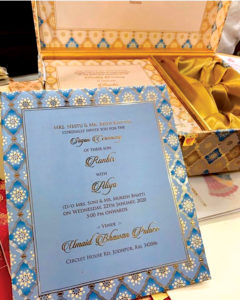 MRS. NEETU & MR.
CORDIALLY INVITE YOU FOR THE
Sagan Ceremony
OF THEIR SON
Ranbir
WITH
Aliya
(D/O MRS. SONI & MR. MUKESH BHATT)
ON WEDNESDAY, 22ND JANUARY, 2020
5:00 PM ONWARDS
Venue
Umaid Bhawan Palace
CIRCUIT HOUSE RD, JODHPUR, RAJ. 342006